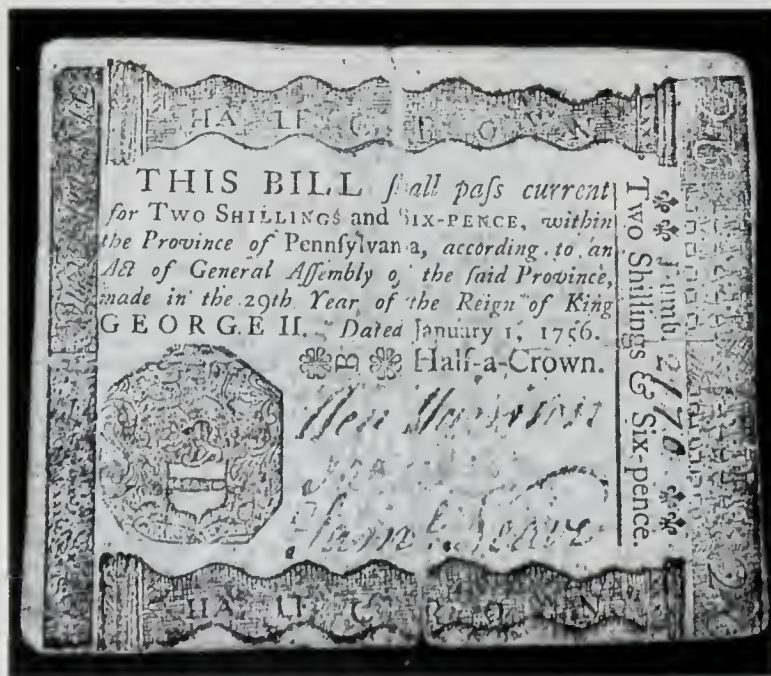 HALF CROWN
THIS BILL ſhall paſs current
for TWO SHILLINGS and SIX-PENCE, within
the Province of Pennſylvania, according to an
Act of General Aſſembly of the ſaid Province,
made in the 29th Year of the Reign of King
GEORGE II. Dated January 1, 1756.
B Half-a-Crown.
HALF CROWN
Numb.
Two Shillings & Six-pence.